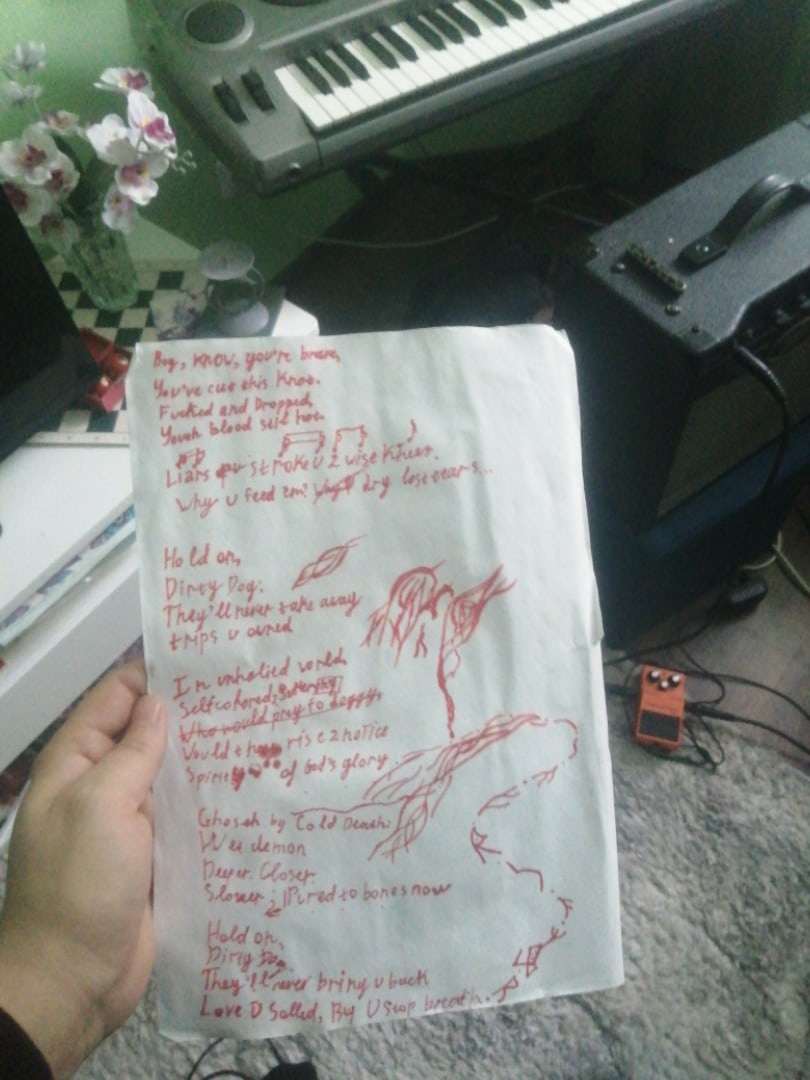 Boy, know, you're brave,
You've cut this knot.
Fucked and Dropped,
Youth blood still hot.
Liars stroke u 2 wise knees.
Why u feed em? dry lose tears...
Hold on,
Dirty Dog;
They'll never take away
trips u owned
In unholied world,
Selfcohored,
Who would prey to doggy,
Would they rise 2 notice
Spirit of God's glory
Chosen by Cold Death:
Wee demon
Deeper. Closer.
Slower; to bones now
Hold on,
Dirty Dog
They'll never bring u back
Love D Solled, By U stop breath.